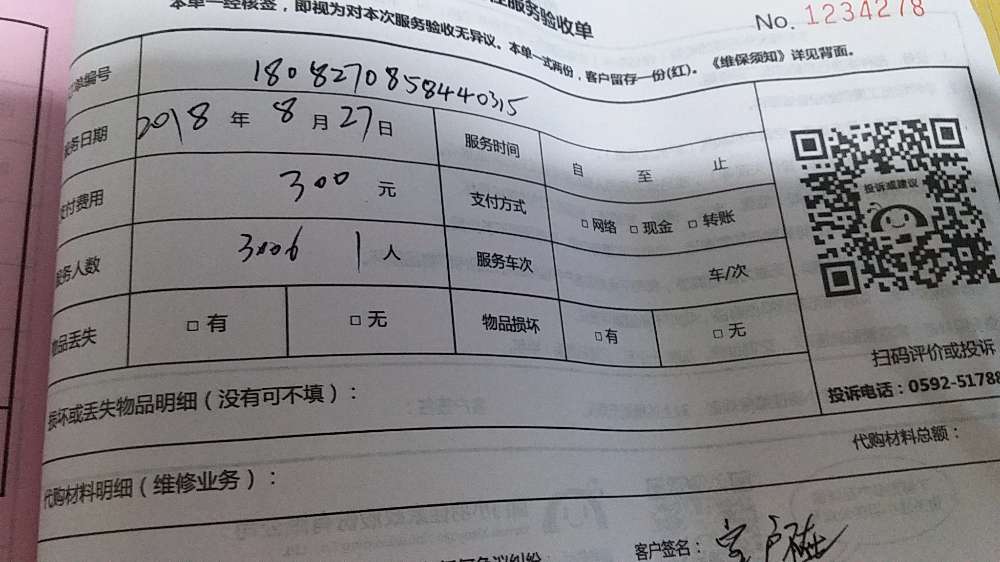 服务验收单
No. 1234278
本单一经核签，即视为对本次服务验收无异议。本单一式两份，客户留存一份(红)。《维保须知》详见背面。
编号 180827085844031​5
务日期 2018 年 8 月 27 日 服务时间 自 至 止
支付费用 300 元 支付方式 □ 网络 □ 现金 □ 转账
务人数 3006 1 人 服务车次 车/次
物品丢失 □ 有 □ 无 物品损坏 □ 有 □ 无
投诉或建议
扫码评价或投诉
投诉电话：0592-51788
损坏或丢失物品明细（没有可不填）：
代购材料明细（维修业务）： 代购材料总额：
客户签名：